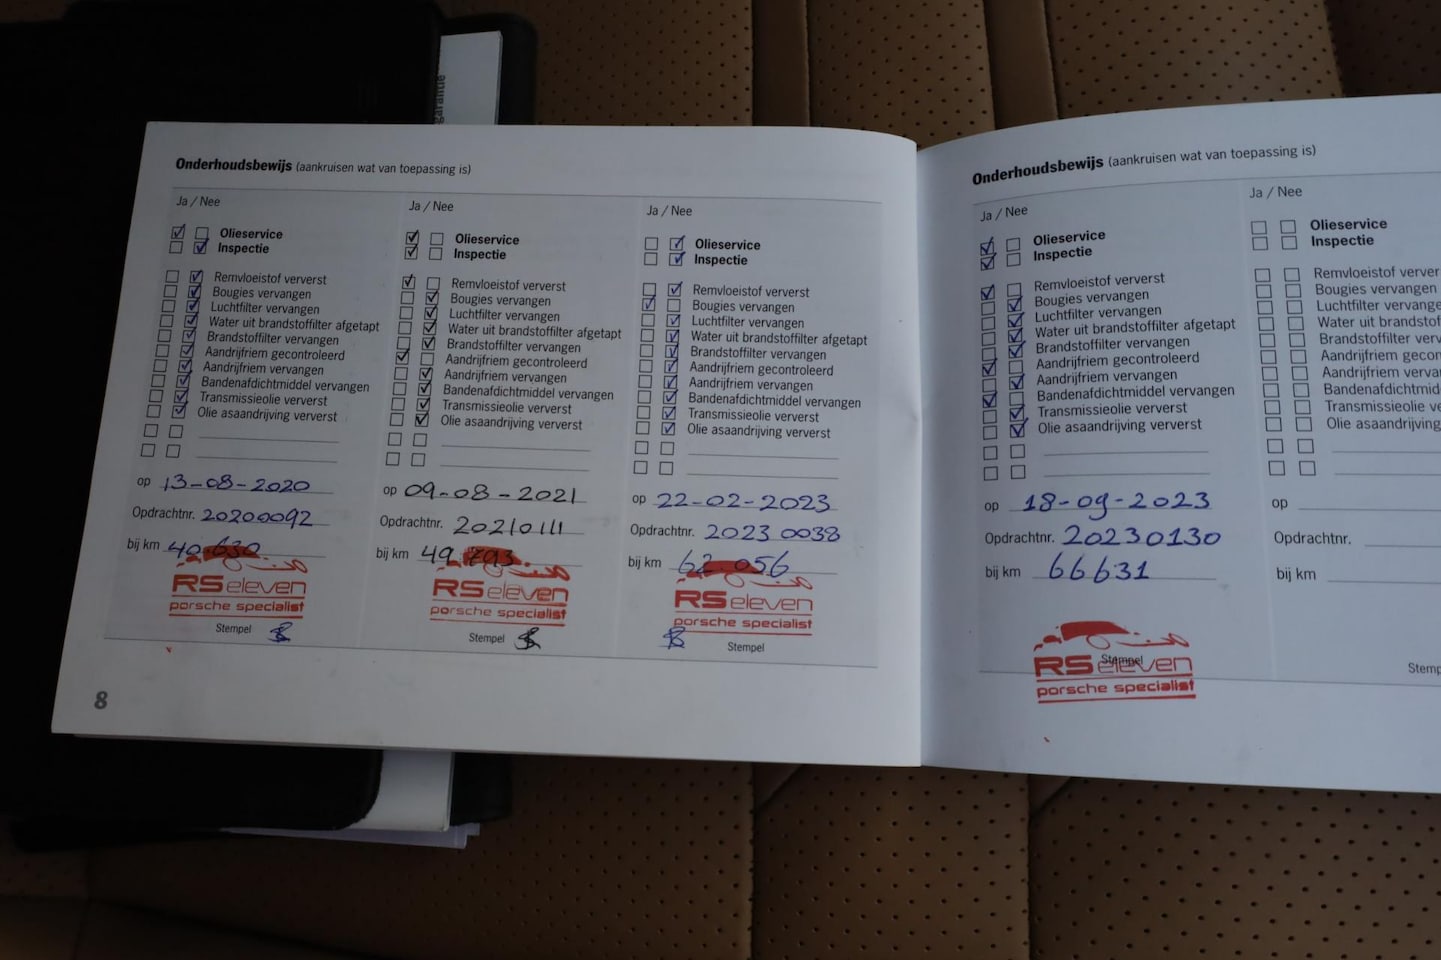 garantie
Onderhoudsbewijs (aankruisen wat van toepassing is)
Ja / Nee
Olieservice
Inspectie
Remvloeistof ververst
Bougies vervangen
Luchtfilter vervangen
Water uit brandstoffilter afgetapt
Brandstoffilter vervangen
Aandrijfriem gecontroleerd
Aandrijfriem vervangen
Bandenafdichtmiddel vervangen
Transmissieolie ververst
Olie asaandrijving ververst
op 13-08-2020
Opdrachtnr. 20200092
bij km 40 630
RS eleven
porsche specialist
Stempel
Ja / Nee
Olieservice
Inspectie
Remvloeistof ververst
Bougies vervangen
Luchtfilter vervangen
Water uit brandstoffilter afgetapt
Brandstoffilter vervangen
Aandrijfriem gecontroleerd
Aandrijfriem vervangen
Bandenafdichtmiddel vervangen
Transmissieolie ververst
Olie asaandrijving ververst
op 09-08-2021
Opdrachtnr. 20210111
bij km 49 793
RS eleven
porsche specialist
Stempel
Ja / Nee
Olieservice
Inspectie
Remvloeistof ververst
Bougies vervangen
Luchtfilter vervangen
Water uit brandstoffilter afgetapt
Brandstoffilter vervangen
Aandrijfriem gecontroleerd
Aandrijfriem vervangen
Bandenafdichtmiddel vervangen
Transmissieolie ververst
Olie asaandrijving ververst
op 22-02-2023
Opdrachtnr. 2023 0038
bij km 62 056
RS eleven
porsche specialist
Stempel
8
Onderhoudsbewijs (aankruisen wat van toepassing is)
Ja / Nee
Olieservice
Inspectie
Remvloeistof ververst
Bougies vervangen
Luchtfilter vervangen
Water uit brandstoffilter afgetapt
Brandstoffilter vervangen
Aandrijfriem gecontroleerd
Aandrijfriem vervangen
Bandenafdichtmiddel vervangen
Transmissieolie ververst
Olie asaandrijving ververst
op 18-09-2023
Opdrachtnr. 20230130
bij km 66631
Stempel
RS eleven
porsche specialist
Ja / Nee
Olieservice
Inspectie
Remvloeistof verver
Bougies vervangen
Luchtfilter vervange
Water uit brandstof
Brandstoffilter verv
Aandrijfriem gecon
Aandrijfriem verva
Bandenafdichtmid
Transmissieolie ve
Olie asaandrijving
op
Opdrachtnr.
bij km
Stemp